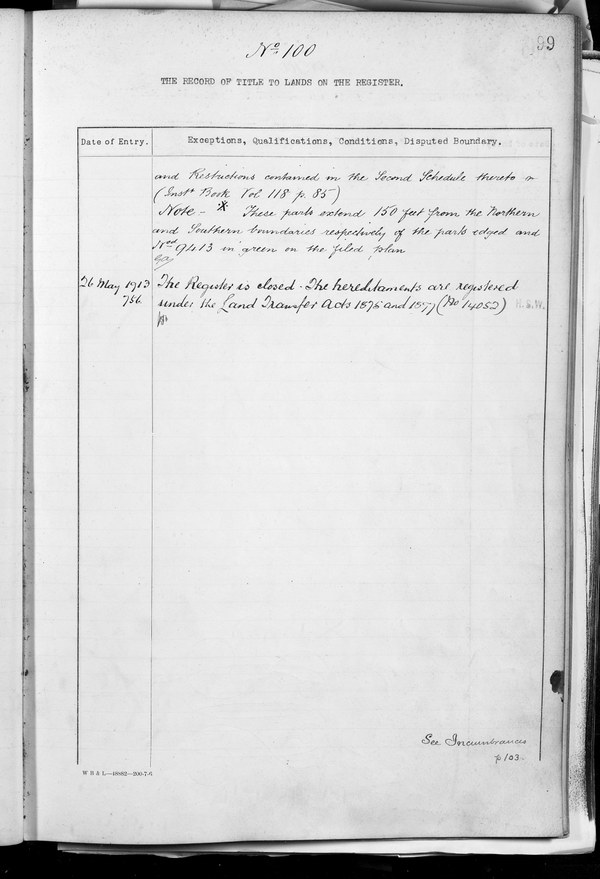 99
No 100
THE RECORD OF TITLE TO LANDS ON THE REGISTER.
Date of Entry.
Exceptions, Qualifications, Conditions, Disputed Boundary.
and Restrictions contained in the Second Schedule thereto
(Instt Book Vol 118 p. 85)
Note - * These parts extend 150 feet from the Northern
and Southern boundaries respectively of the parts edged and
Noed 9413 in green on the filed plan
26 May 1913 The Register is closed. The hereditaments are registered
756 under the Land Transfer Acts 1875 and 1897 (No 14052)
See Incumbrances
p 103
W B & L—18882—200-7-6